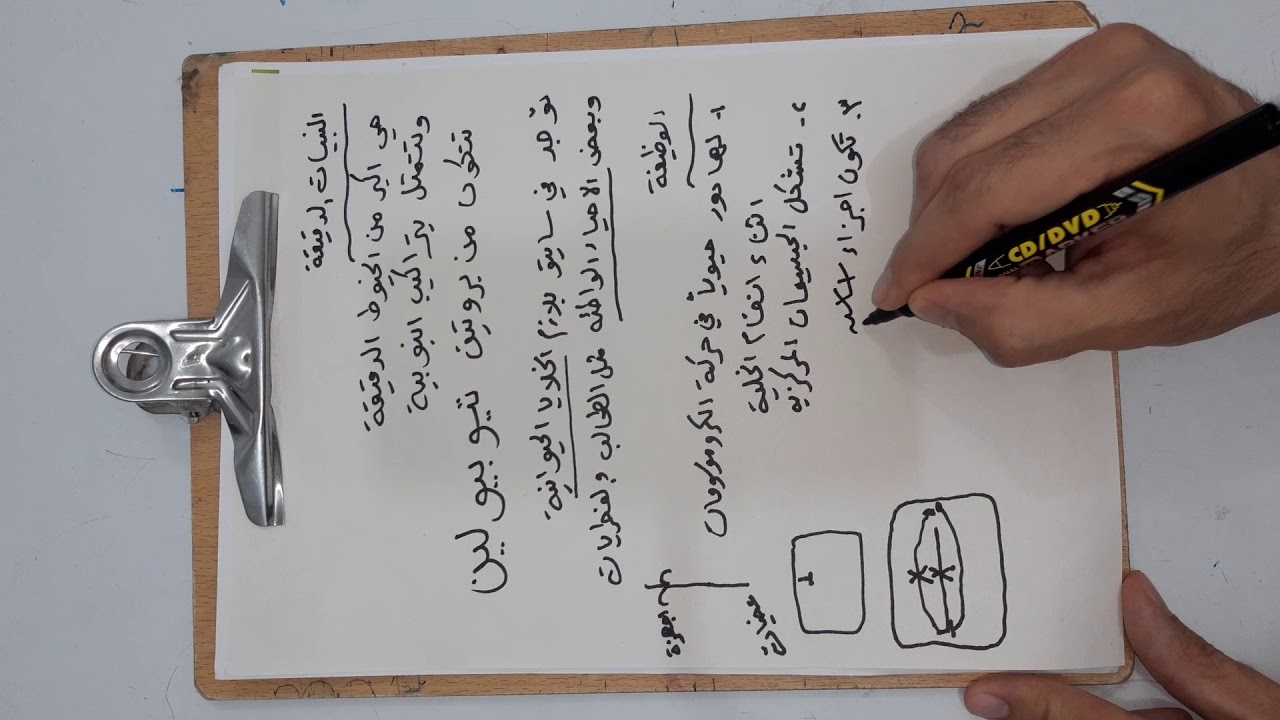 النبيبات الدقيقة
هي اكبر من الخيوط الدقيقة
وتتمثل بتراكيب انبوبية
تتكون من بروتين تيوبيولين
توجد في سايتوبلازم الخلايا الحيوانية
وبعض الاحياء الواطئة مثل الطحالب ولفطريات
الوظيفة
١- لها دور حيوياً في حركة الكروموسومات
اثناء انقسام الخلية
٢- تشكل الجسيمات المركزية
٣. تكون اجزاء
اجهزة
CD/DVD